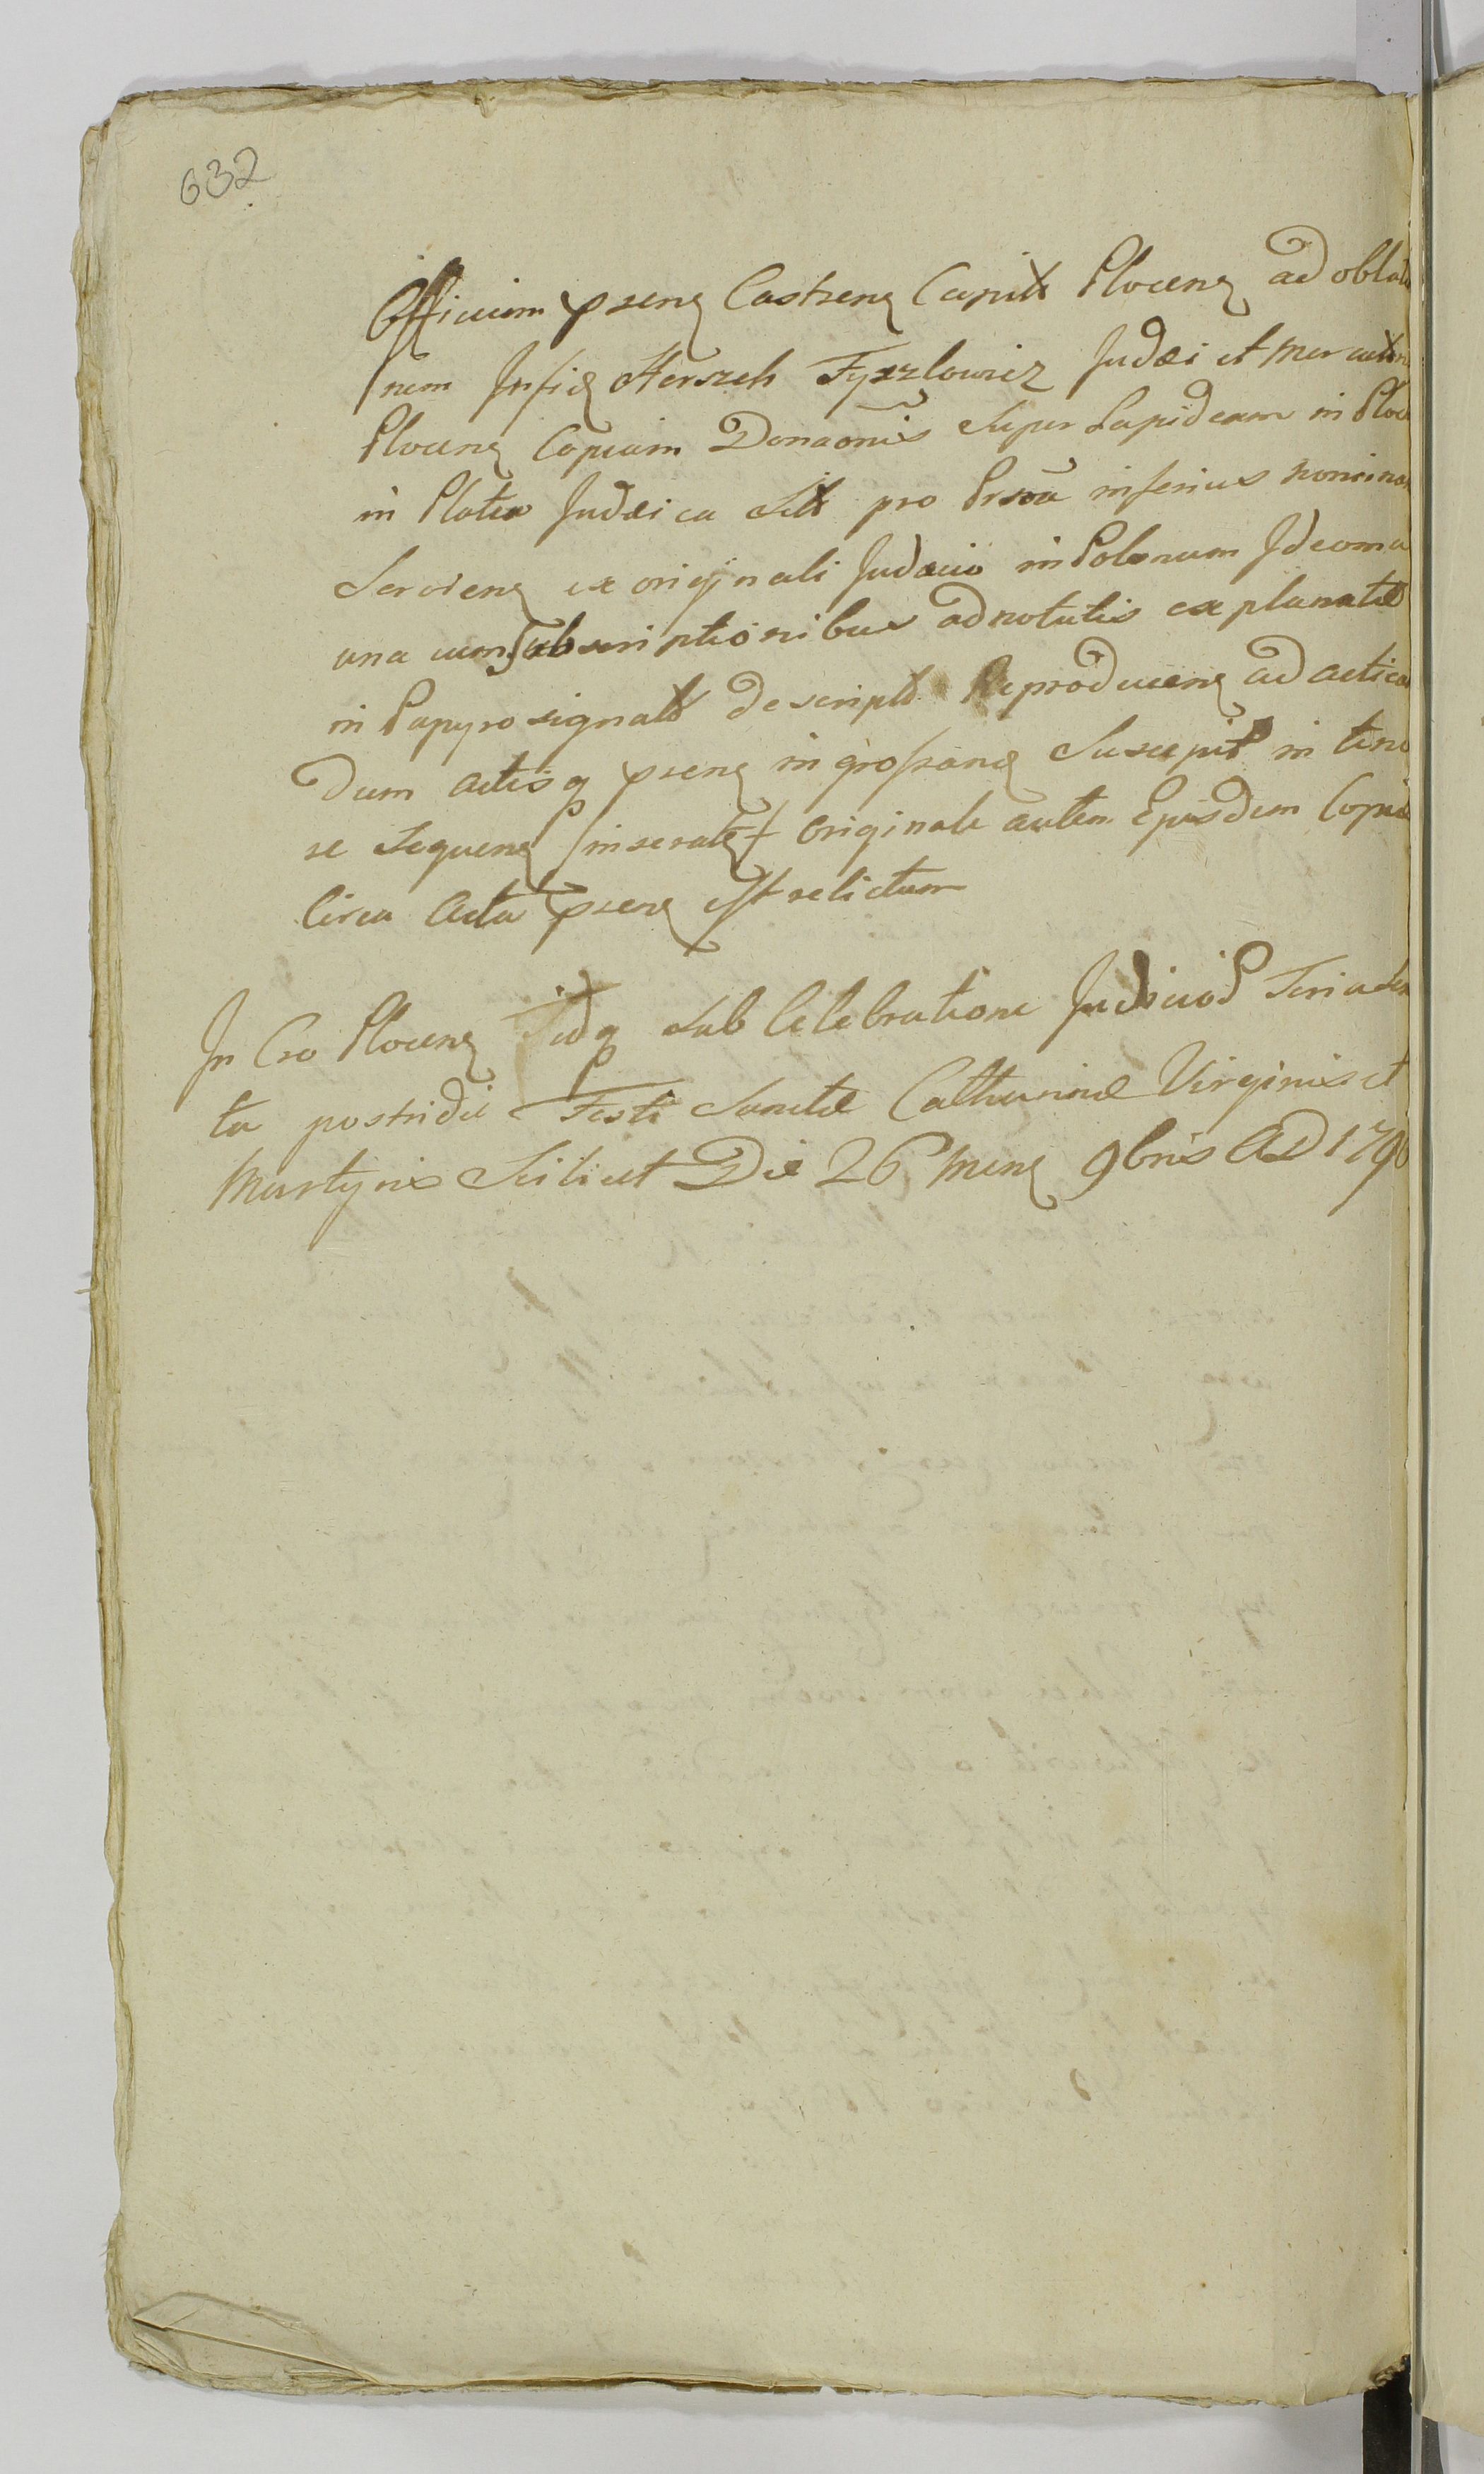 632
Officium pseng Castreng Capitt Ploceng ad oblat
nem Infig Herszek Fyszlowicz Judæi et Mercato
Ploceng Copiam Donaonis Super Lapideam in Ploc
in Platea Judaica Sitt pro Psona inferius nomina
Servieng ex originali Judaico in Polonum Ideoma
una cum Subscriptionibus adnotatis explanatæ
in Papyro signato descript Reproduceng ad actica
dum actisq pseng ingrossang Suscepit in teno
re Sequeng /inseratg/ Originale autem Ejusdem Copiæ
Circa Acta pseng est relictum
In Cro Ploceng Fidq Sub Celebratione Judicior Feria Sex
ta postridie Festi Sanctæ Catharinæ Virginis et
Martyris Scilicet Die 26 Meng 9bris AD 1790